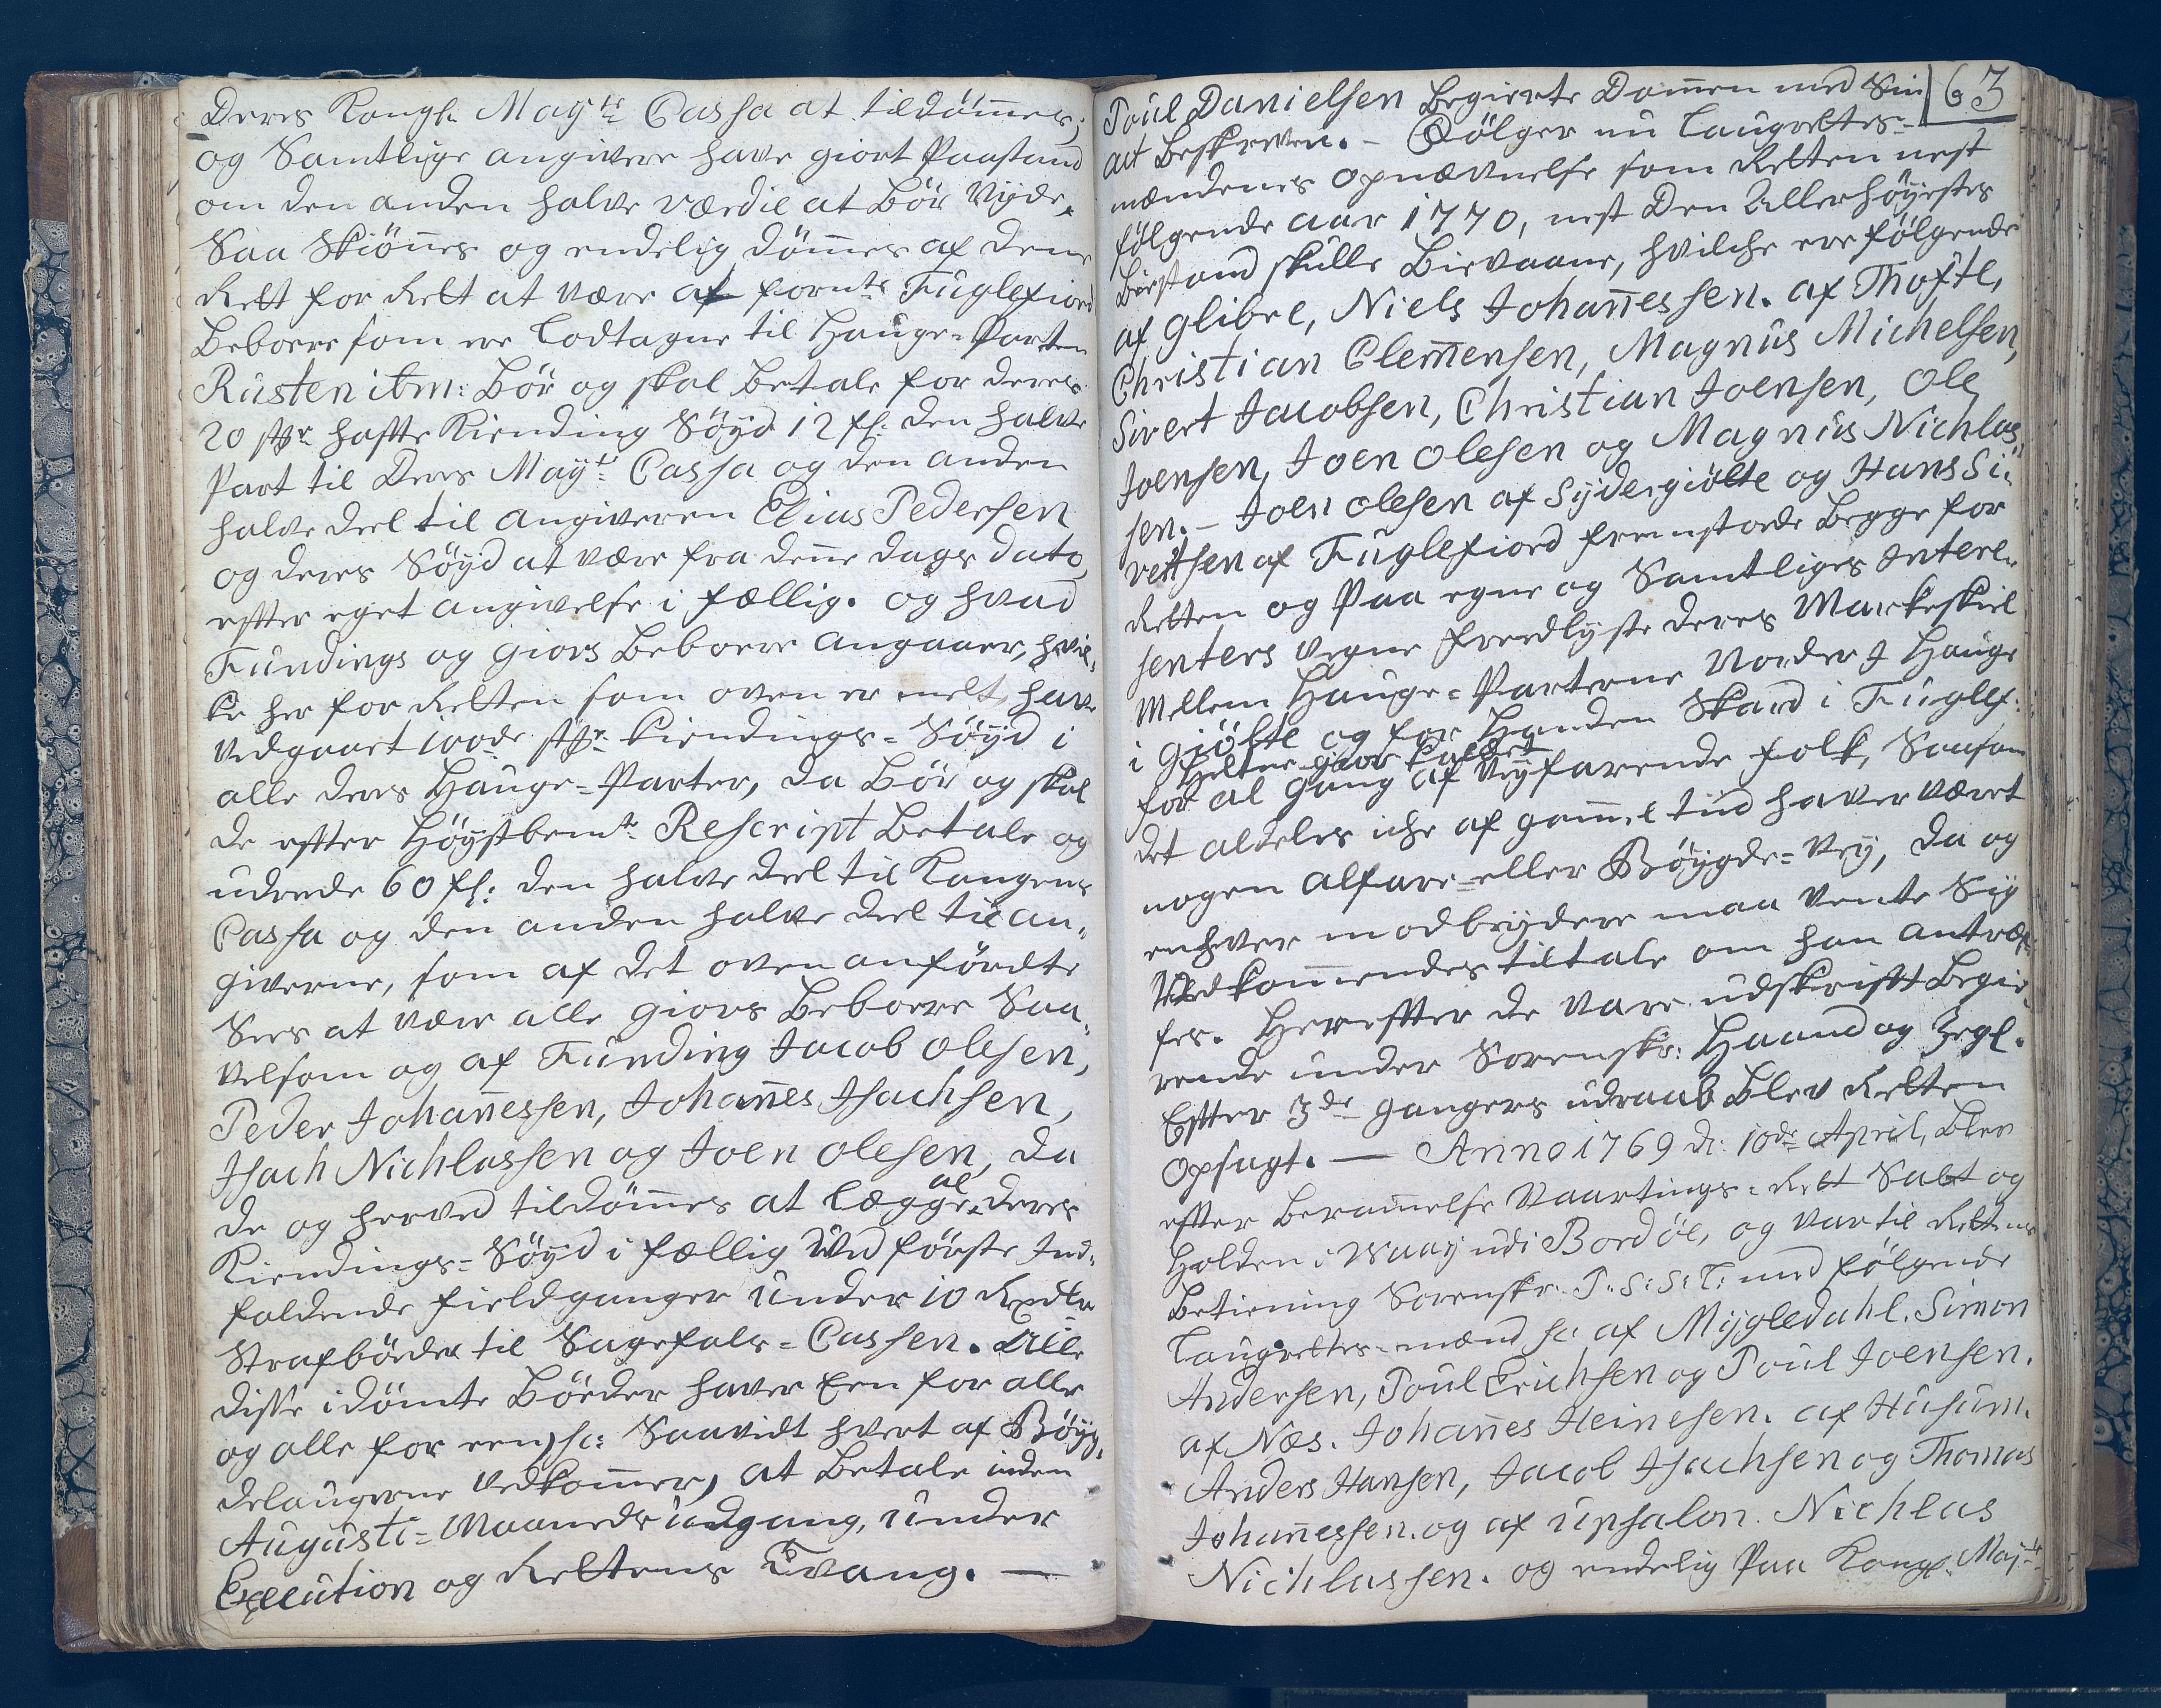 Deres Kongl. Mayts Cassa at tildømmes;
og Samtlige angivere have giort Paastand
om den anden halve værdie at Bør Nyde,
Saa Skiønnes og endelig dømmes af denne
Rett for Rett at være af fornte Fuglefiord
Beboere som ere Lodtagne til Hauge-Parten
Rusten itm: Bør og skal Betale for deres
20 stkr hafte Kiending Søyd 12 fl: den halve
Part til Deres Mayts Cassa og den anden
halve deel til angiveren Elias Pedersen
og deres Søyd at være fra denne dags dato
efter eget angivelse i fællig. og hvad
Fundings og Giovs Beboere angaaer, hvil-
ke her for Retten som oven er melt, have
vedgaaet 100de stkr Kiendings-Søyd i
alle deres Hauge-Parter, da Bør og skal
de efter Høystbemte Rescript Betale og
udrede 60 fl: den halve deel til Kongens
Cassa og den anden halve deel til an-
giverne, som af det ovenanførdte
Sees at være alle Giovs Beboere Saa-
velsom og af Funding Jacob Olesen,
Peder Johannessen, Johannes Isachsen,
Isach Nichlassen og Joen Olesen, da
de og herved tildømmes at lægge al deres
Kiendings-Søyd i fællig Ved første Ind-
faldende fieldganger under 10 Rexdlr
Strafbøder til Sagefals-Cassen. Alle
disse idømte Bøder haver Een for alle
og alle for een, sc: Saavidt hvert af Bøyg-
delaugerne vedkommer, at Betale inden
Augusti-Maaneds udgang, under
Execution og Rettens Tvang. —
63
Poul Danielsen Begierte Dommen med Sin
act Beskreven. - Følger nu Laugrettes-
mændenes opnævnelse som Retten nest
følgende aar 1770, nest Den Allerhøyestes
Bistand skulle Bievaane, hvilche ere følgende
af Glibre, Niels Johannessen. af Thofte,
Christian Clemensen, Magnus Michelsen,
Sivert Jacobsen, Christian Joensen, Ole
Joensen, Joen Olesen og Magnus Nichlas-
sen. - Joen Olesen af Sydergiøtte og Hans Si-
vertsen af Fuglefiord fremstode Begge for
Retten og Paa egne og Samtliges Interes-
senters vegne fredlyste deres Markeskiel
Mellem Hauge-Parterne Norder i Hauge
i Giøtte og for Handen Skard i Fuglef:
for al gang af Veyfarende folk, Saasom
det aldeles iche af gammel tiid haver været
nogen alfare- eller Bøygde-Vey, da og
enhver modbrydere maa vente Sig
Vedkommendes tiltale om han antref-
fes. Herefter de vare udskrifft Begie-
rende under Sorenskr: Haand og Zegl.
Efter 3de gangers udraab Blev Retten
opsagt. — Anno 1769 d: 10de April, Blev
efter Berammelse Vaartings-Rett Sat og
Holden i Waay udi Bordøe, og var til Rettens
Betiening Sorenskr. P: S: S: T: med følgende
Laugrettes-mænd sc af Mygledahl. Simon
Andersen, Poul Erichsen og Poul Joensen.
af Næs. Johannes Heinesen. af Husum.
Anders Hansen, Jacob Isachsen og Thomas
Johannessen. og af Upsalon. Nichlas
Nichlassen. og endelig Paa Kongl. Mayts